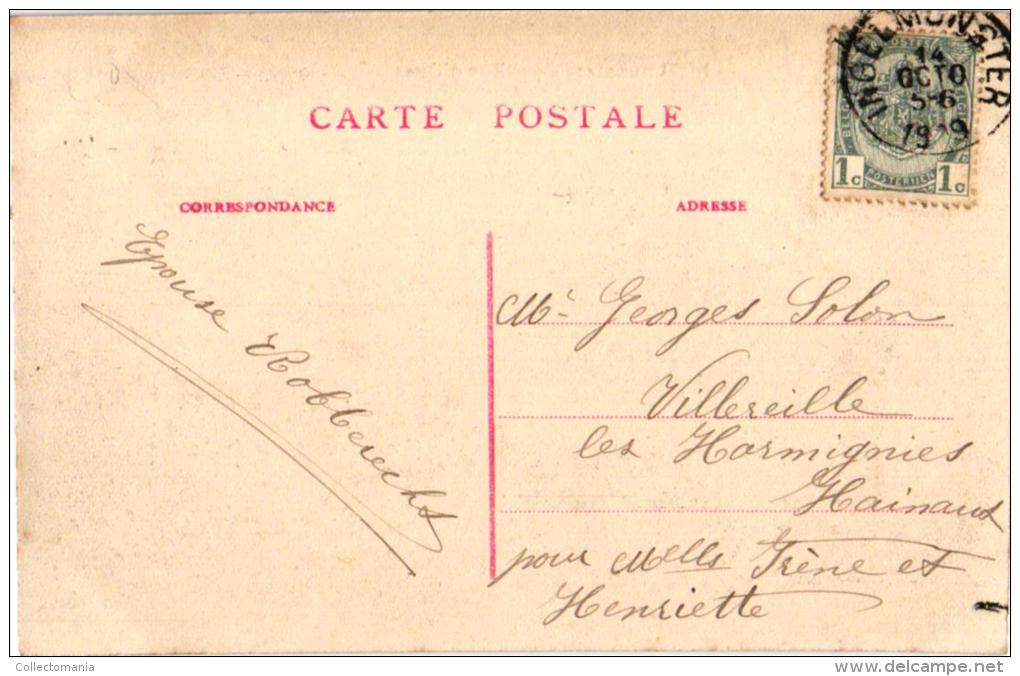 CARTE POSTALE
INGELMUNSTER
14
OCTO
5-6
1909
POSTES
BELGIQUE
1c 1c
POSTERIJEN
CORRESPONDANCE
ADRESSE
Epouse Robberechts
Mr Georges Solon
Villereille
les Harmignies
Hainaut
pour Melles Irène et
Henriette
Collectomania
www.delcampe.net